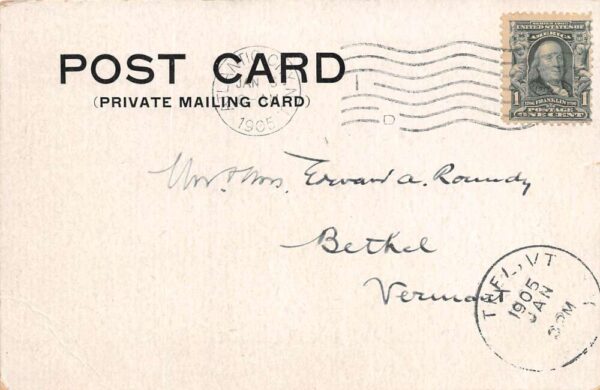 POST CARD
(PRIVATE MAILING CARD)
ATLANTIC CITY N.J.
JAN
1905
D
SERIES 1902
UNITED STATES OF
AMERICA
1 FRANKLIN 1
POSTAGE
ONE CENT
Mr. & Mrs. Edward A. Roundy
Bethel
Vermont
THEL, VT
1905
JAN
PM